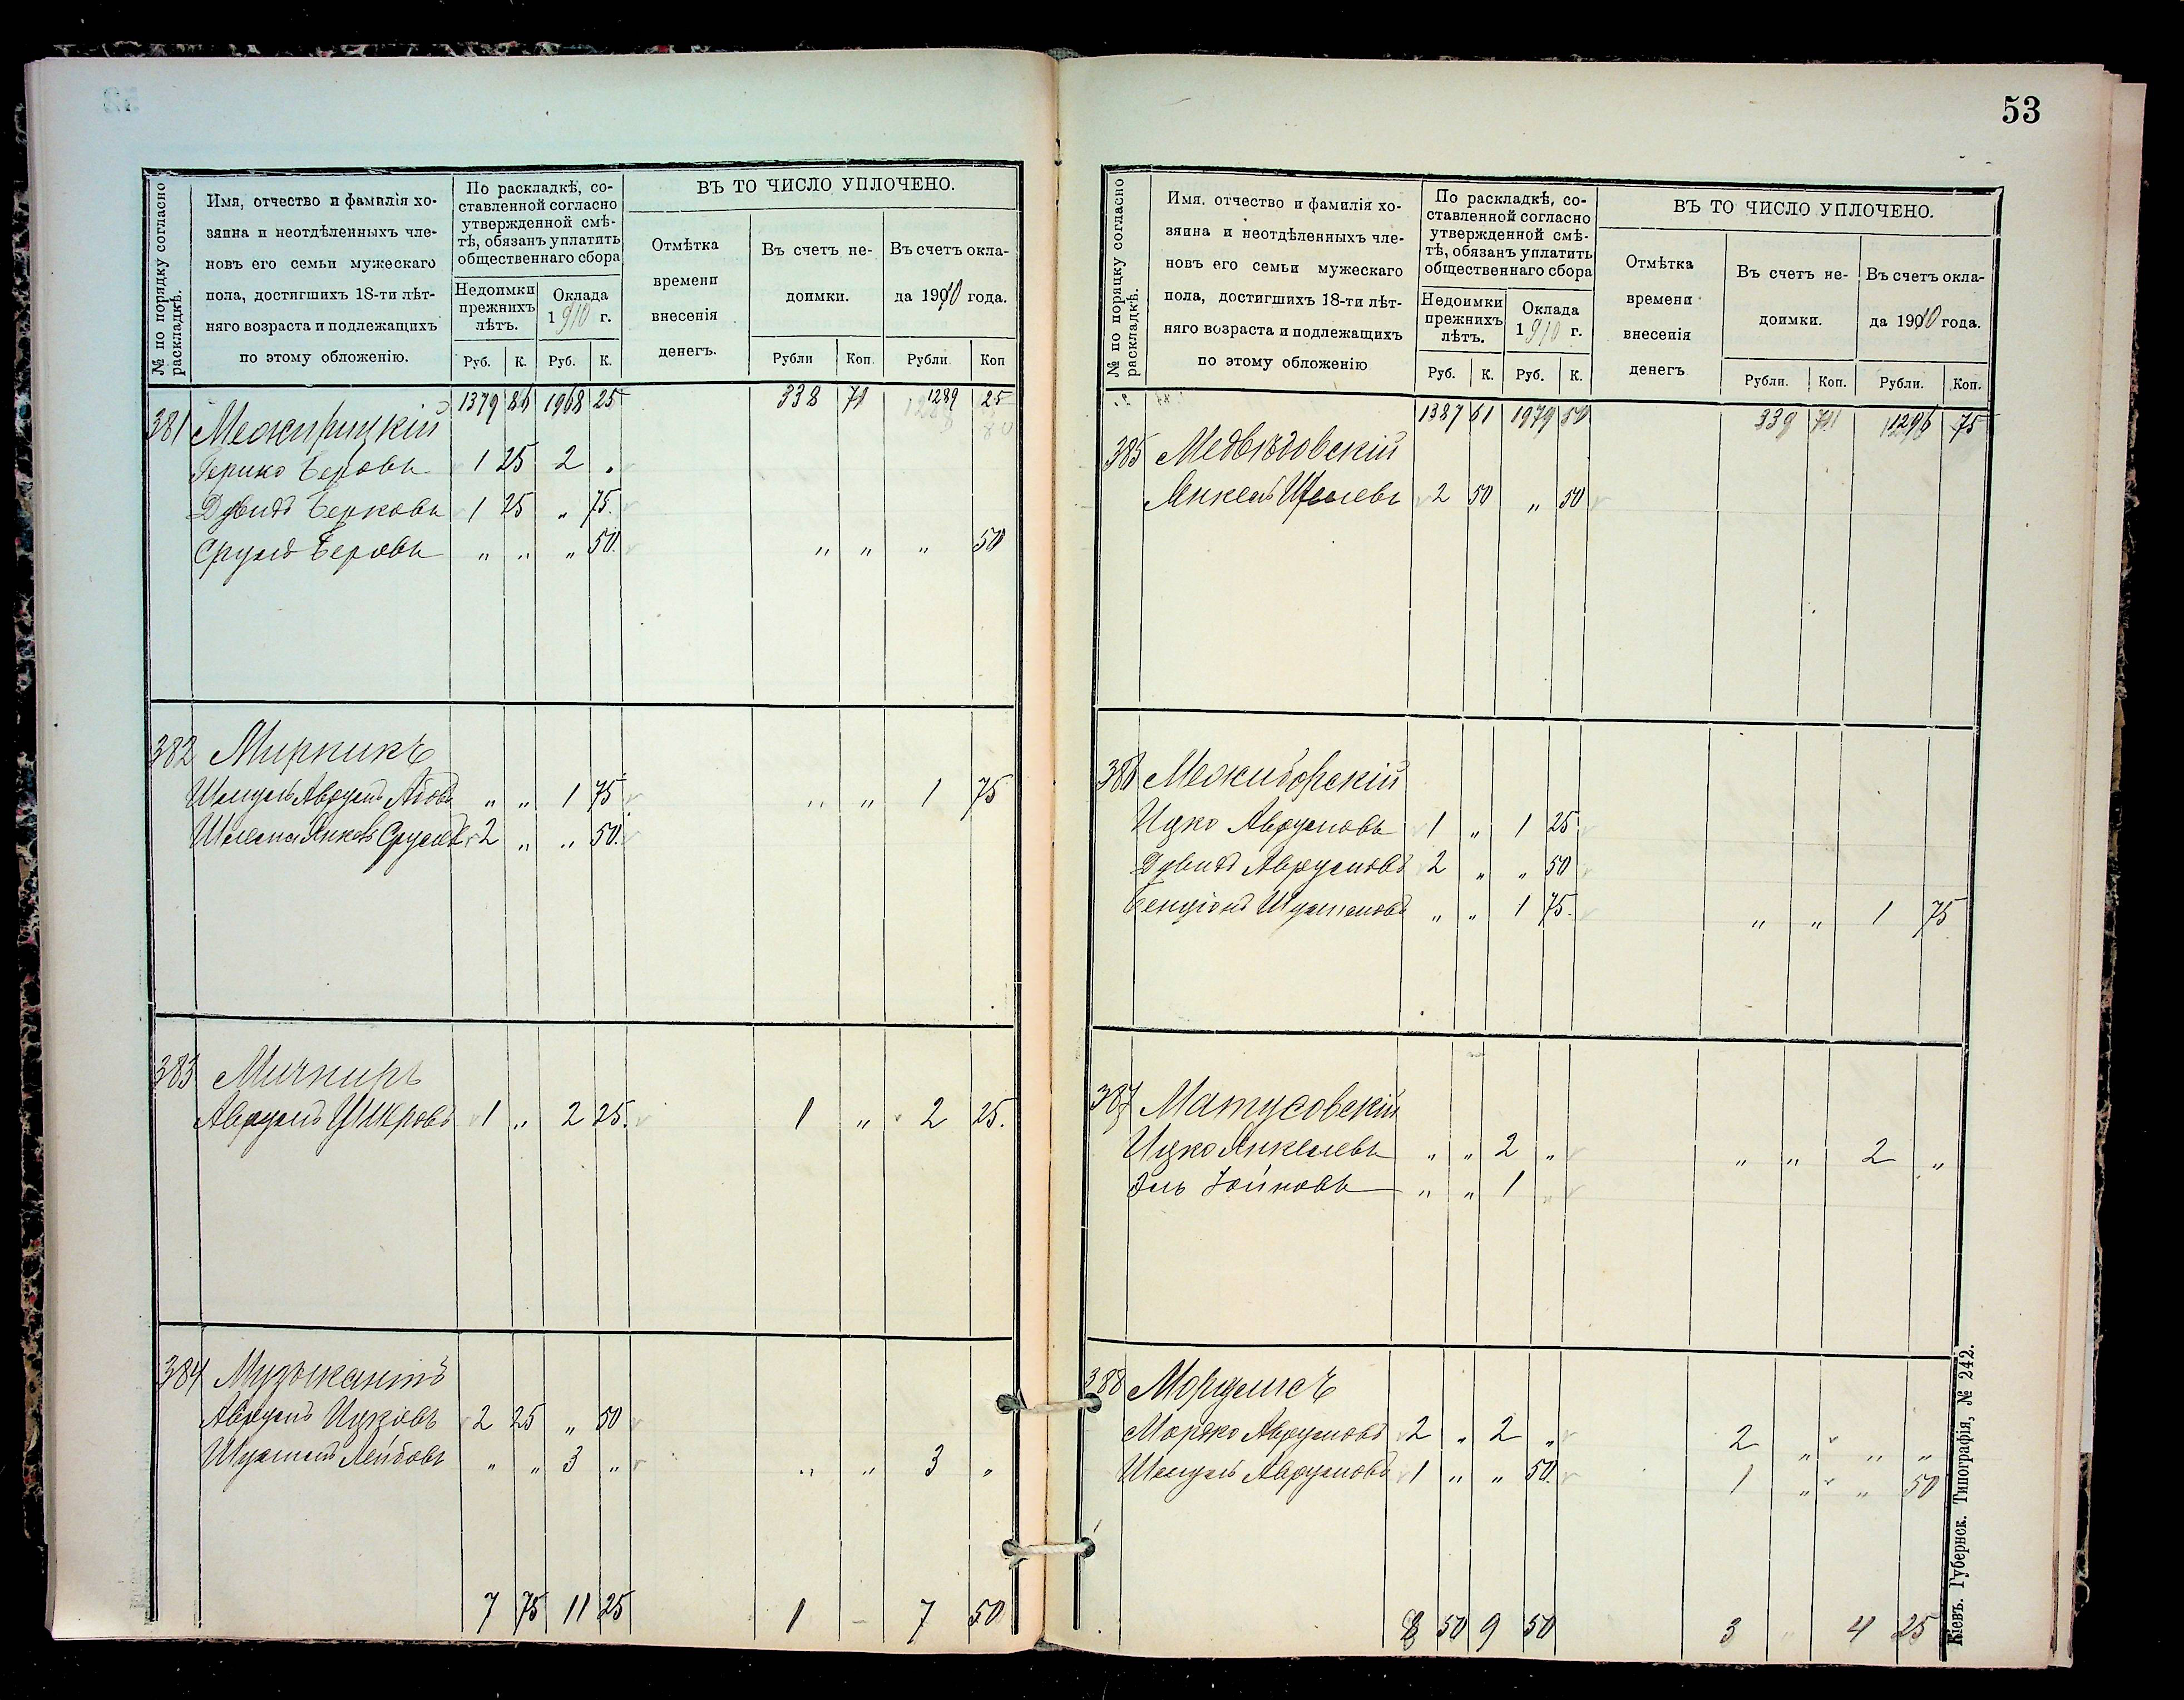 53
№ по порядку согласно раскладкѣ.
Имя, отчество и фамилія хо-
зяина и неотдѣленныхъ чле-
новъ его семьи мужескаго
пола, достигшихъ 18-ти лѣт-
няго возраста и подлежащихъ
по этому обложенію.
По раскладкѣ, со-
ставленной согласно
утвержденной смѣ-
тѣ, обязанъ уплатить
общественнаго сбора
Недоимки
прежнихъ
лѣтъ.
Оклада
1910 г.
Руб. К. Руб. К.
ВЪ ТО ЧИСЛО УПЛОЧЕНО.
Отмѣтка
времени
внесенія
денегъ.
Въ счетъ не-
доимки.
Въ счетъ окла-
да 1910 года.
Рубли Коп. Рубли. Коп
1379 86 1968 25 338 71 1289 25
381 Межирицкій
Гершко Беровъ 1 25 2 "
Дувидъ Берковъ 1 25 " 75
Сруль Беровъ " " " 50 " " " 50
382 Мирникъ
Шмуль Аврумъ " " 1 75 " " 1 75
Шлема Янкель Срулевъ 2 " " 50
383 Мичникъ
Аврумъ 1 " 2 25 1 " 2 25
384 Музыкантъ
Аврумъ Ицковъ 2 25 " 50
Шулимъ Лейбовъ " " 3 " " " 3 "
7 75 11 25 1 - 7 50
№ по порядку согласно раскладкѣ.
Имя, отчество и фамилія хо-
зяина и неотдѣленныхъ чле-
новъ его семьи мужескаго
пола, достигшихъ 18-ти лѣт-
няго возраста и подлежащихъ
по этому обложенію
По раскладкѣ, со-
ставленной согласно
утвержденной смѣ-
тѣ, обязанъ уплатить
общественнаго сбора
Недоимки
прежнихъ
лѣтъ.
Оклада
1910 г.
Руб. К. Руб. К.
ВЪ ТО ЧИСЛО УПЛОЧЕНО.
Отмѣтка
времени
внесенія
денегъ
Въ счетъ не-
доимки.
Въ счетъ окла-
да 1910 года.
Рубли. Коп. Рубли. Коп.
1387 61 1979 50 339 71 1296 75
385 Медвѣдовскій
Янкель 2 50 " 50
386 Межиборскій
Ицко Аврумовъ 1 " 1 25
Дувидъ Аврумовъ 2 " " 50
Бенціонъ Шулимовъ " " 1 75 " " 1 75
387 Матусовскій
Ицко Янкелевъ " " 2 " " " 2 "
Эль " " 1 "
388
Мошко Аврумовъ 2 " 2 " 2 " " "
Шмуль Аврумовъ 1 " " 50 1 " " 50
8 50 9 50 3 " 4 25
Кіевъ. Губернск. Типографія, № 242.